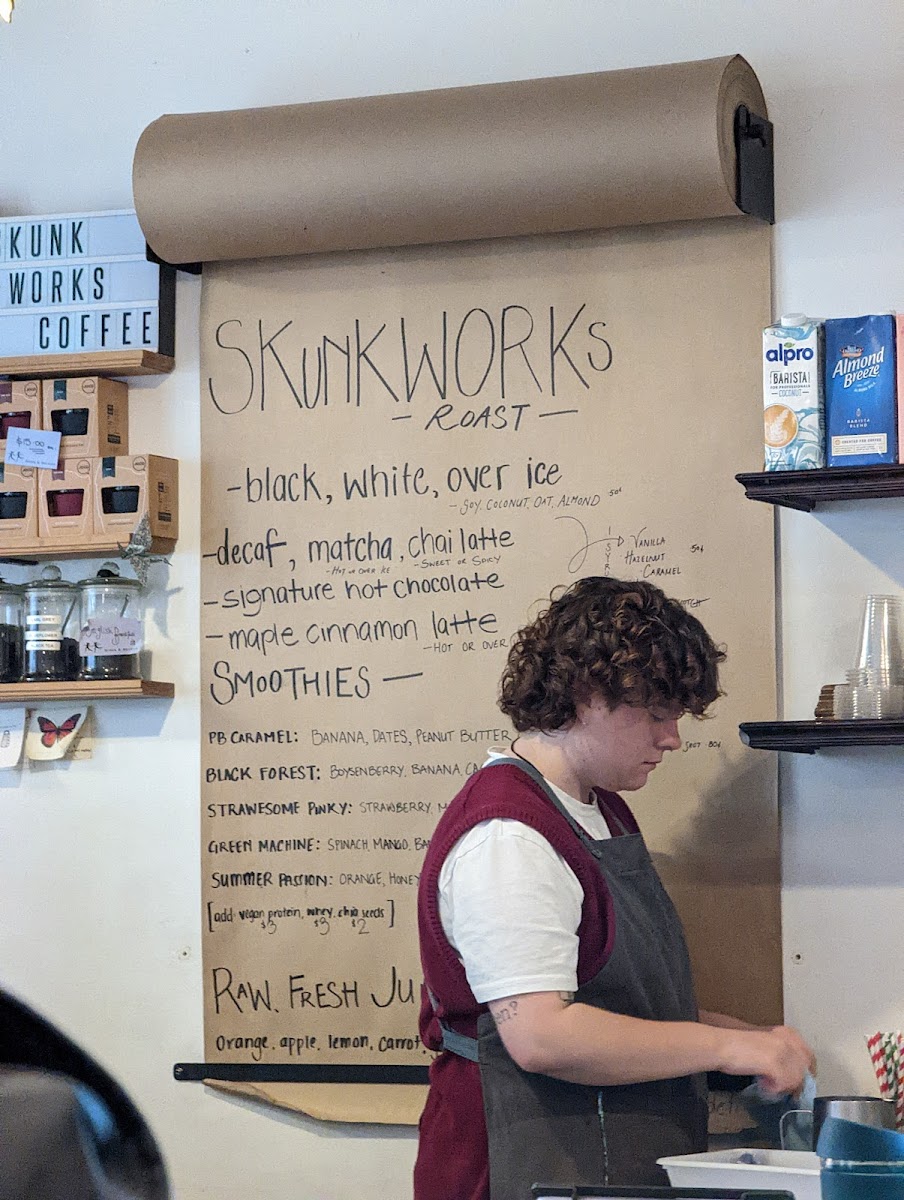 KUNK
WORKS
COFFEE
$15.00
SKUNKWORKS
- ROAST -
-black, white, over ice
- SOY, COCONUT, OAT, ALMOND 50¢
-decaf, matcha, chai latte
- HOT OR OVER ICE - SWEET OR SPICY
VANILLA
HAZELNUT 50¢
CARAMEL
-signature hot chocolate
-maple cinnamon latte
-HOT OR OVER
SMOOTHIES —
PB CARAMEL: BANANA, DATES, PEANUT BUTTER
BLACK FOREST: BOYSENBERRY, BANANA, CA
STRAWESOME PINKY: STRAWBERRY, M
GREEN MACHINE: SPINACH, MANGO, BA
SUMMER PASSION: ORANGE, HONEY
[add: vegan protein, whey, chia seeds]
$3 $3 $2
RAW. FRESH JU
Orange, apple, lemon, carrot,
alpro
BARISTA
FOR PROFESSIONALS
COCONUT
Almond
Breeze
BARISTA
BLEND